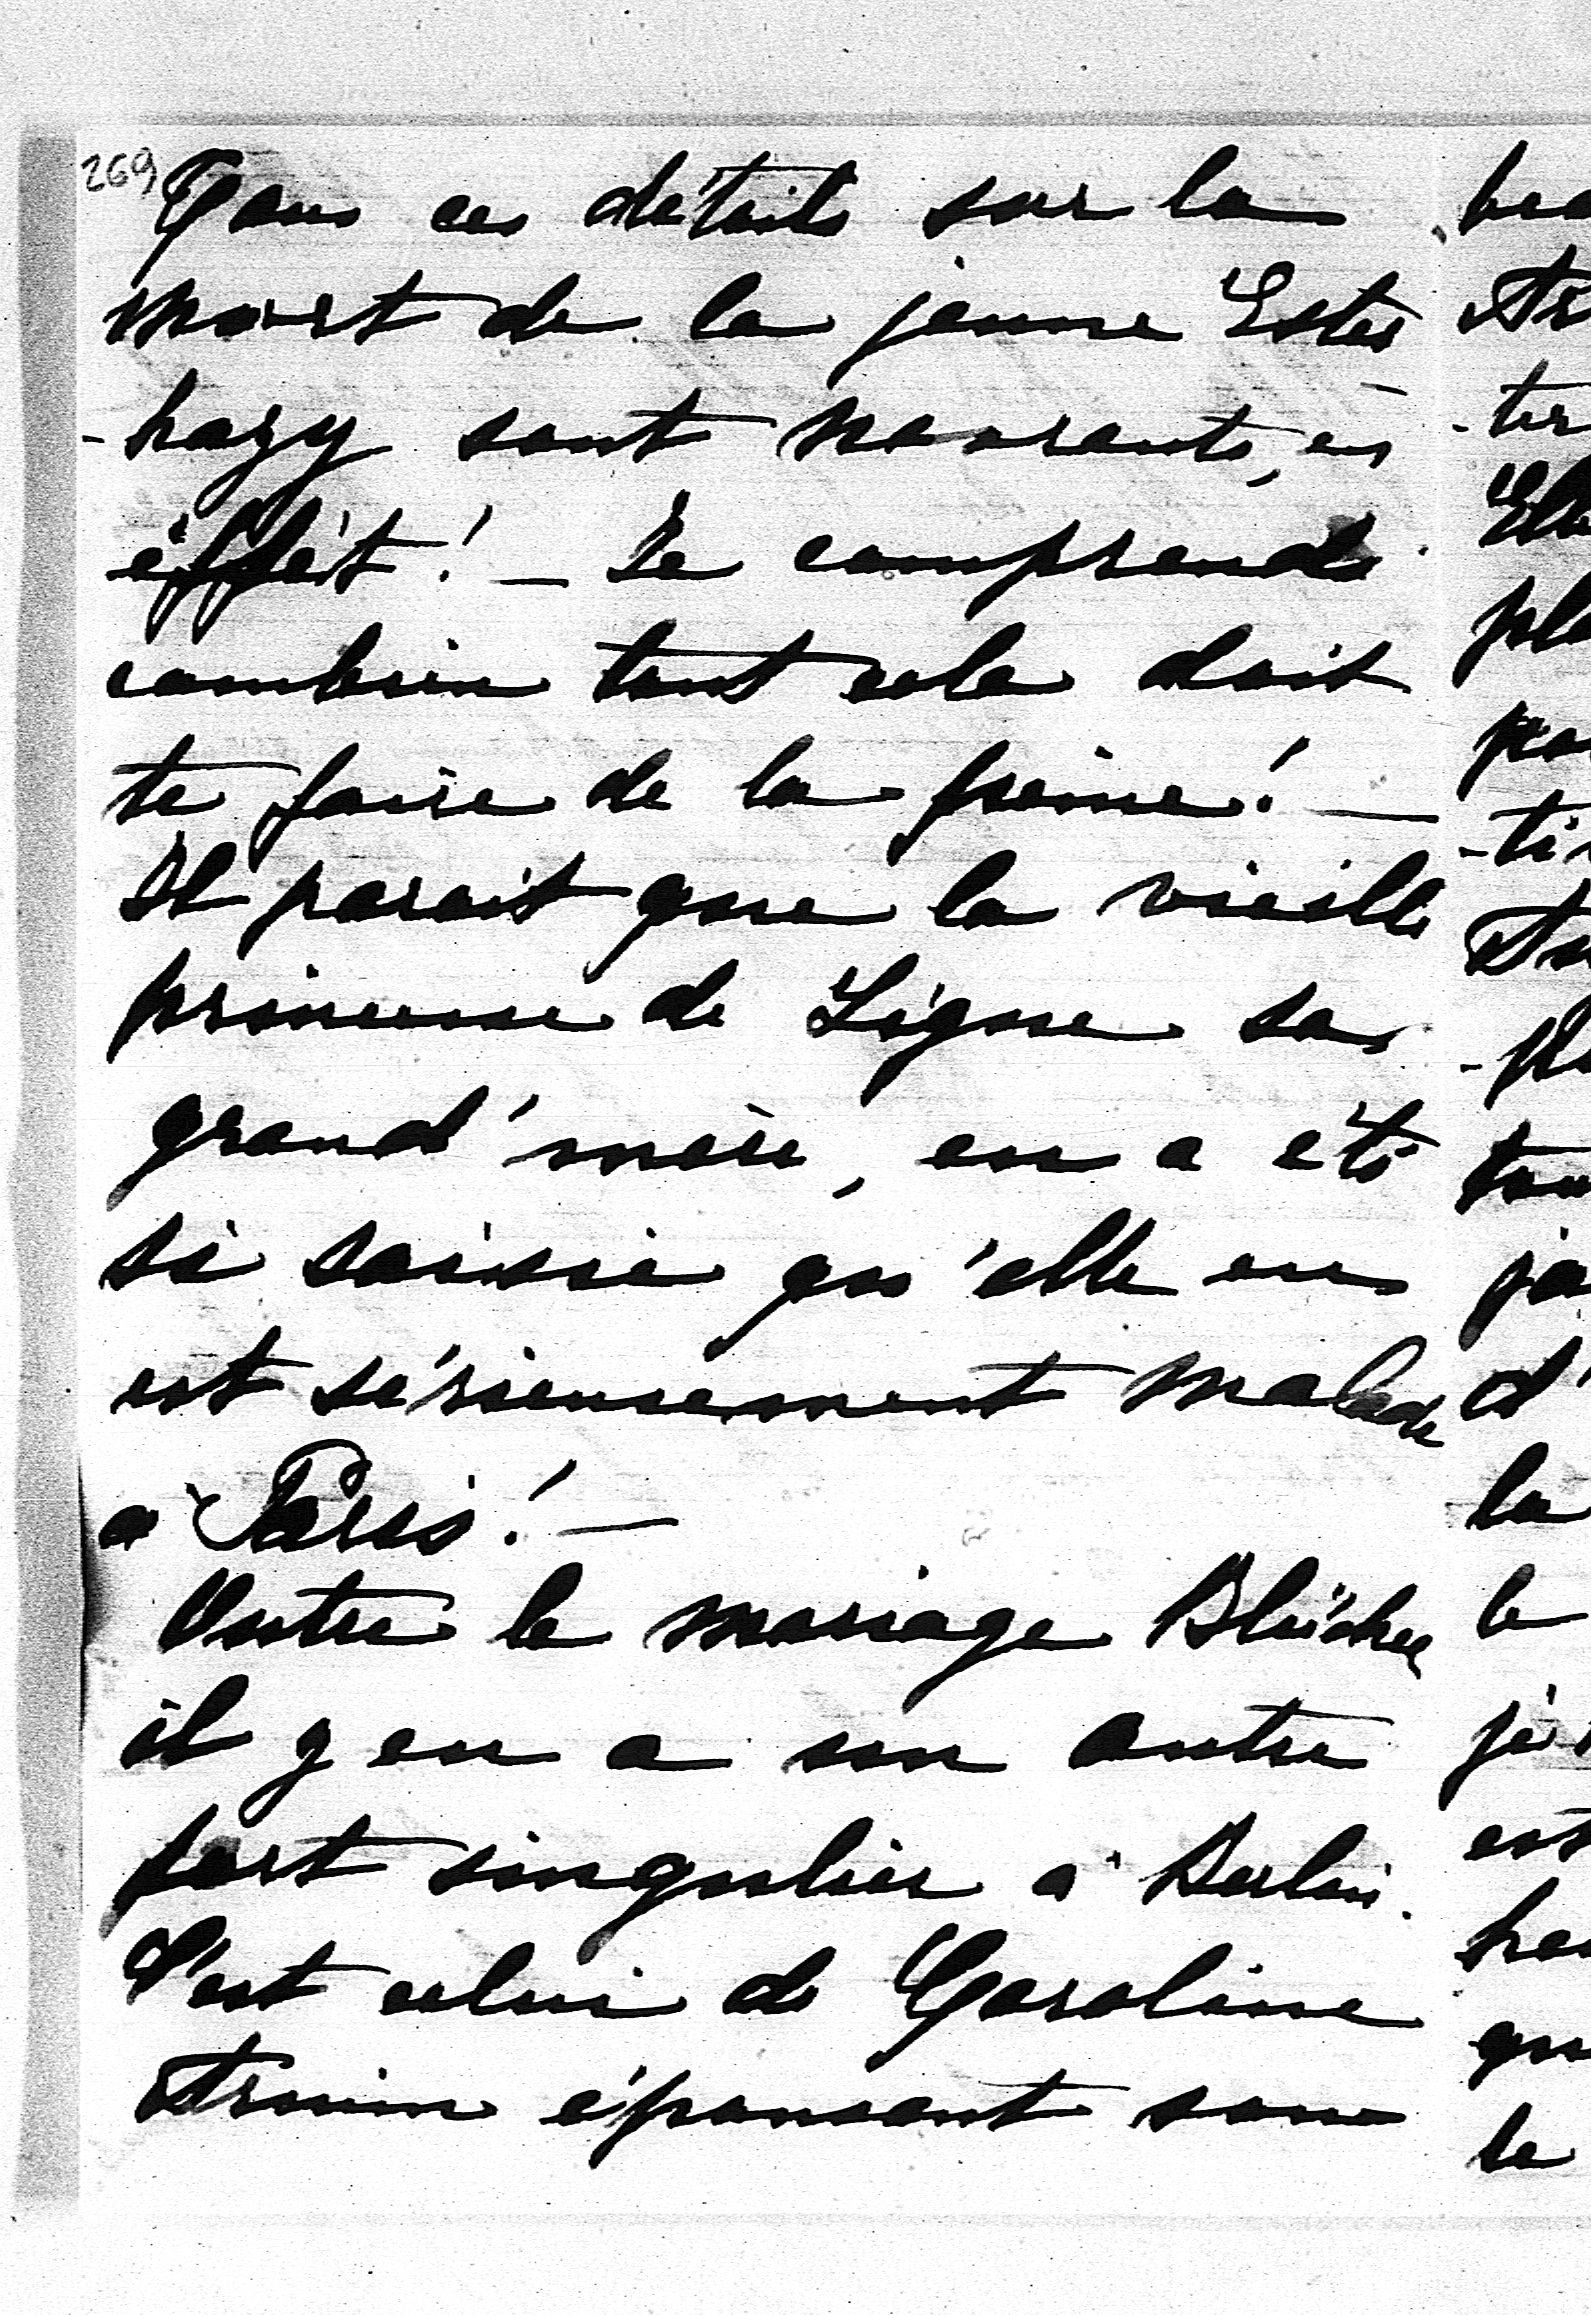 269
Tous ces détails sur la
mort de la jeune Ester
-hazy sont navrants, en
effet! _ Je comprends
combien tout cela doit
te faire de la peine! _
Il parait que la vieille
princesse de Ligne sa
grand'mère, en a été
si saisie qu'elle en
est sérieusement malade
à Paris! _
Outre le mariage Blücher
il y en a un autre
fort singulier à Berlin.
C'est celui de Caroline
Arnim épousant son